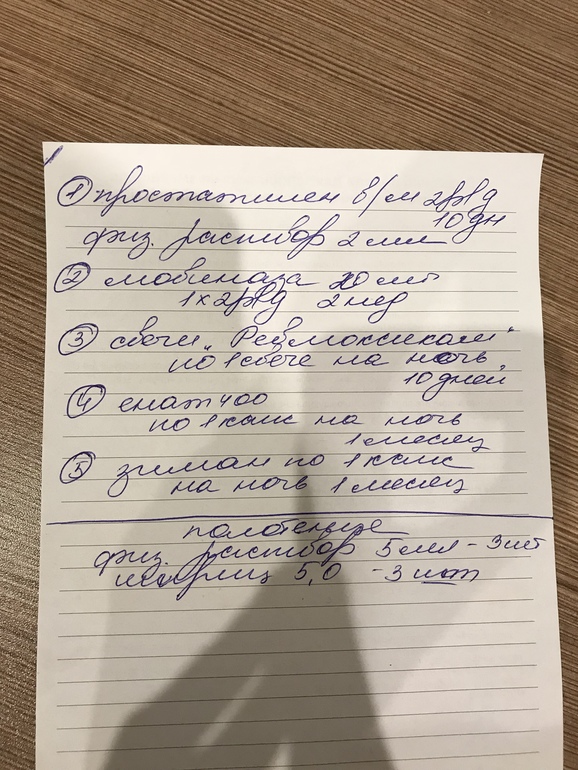 ① простатилен в/м 2р/д
10 дн
физ. раствор 2 мл
② мобиназа 20 мг
1х2р/д 2 нед
③ свечи „Ревмоксикам"
по 1 свече на ночь
10 дней
④ енат 400
по 1 капс на ночь
1 месяц
⑤ зиман по 1 капс
на ночь 1 месяц
полотенце
физ. раствор 5 мл – 3 шт
шприц 5,0 – 3 шт